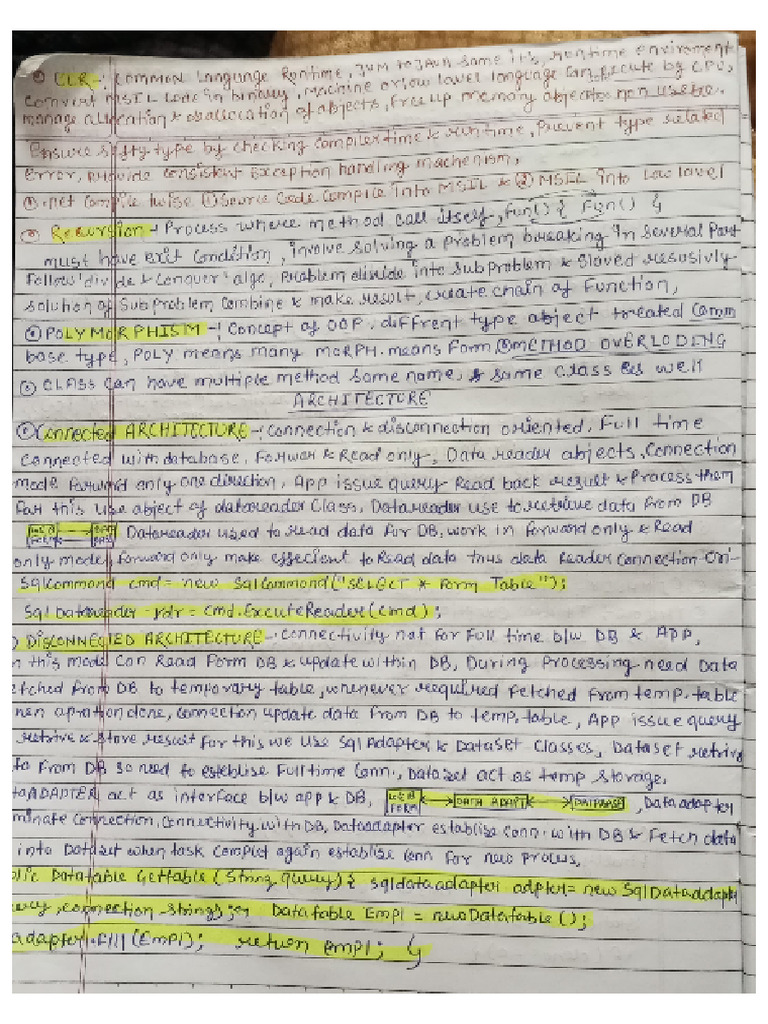 ① CLR -: COMMON Language Runtime, JVM to JAVA same its, runtime enviroment
Convert MSIL Code in binary, Machine or low level language can execute by CPU,
manage allocation & deallocation of objects, Free up memory objects non usable.
Ensure sifty type by checking compilertime & runtime, Prevent type related
Error, Provide Consistent Exception handling machenism,
①.net Compile twise ①Source Code Compile into MSIL & ② MSIL into Low level
② Recursion -: Process where method call itself, Fun() { Fun() }
must have exit condition, involve solving a problem breaking in several Part
Follows 'divide & Conquer' algo, Problem divide into Subproblem & Slaved resusivly
solution of Subproblem Combine & make result, create chain of Function,
POLYMORPHISM -: Concept of OOP. diffrent type object treated Comm
base type, POLY means many MORPH. means Form, METHOD OVERLODING
CLASS can have multiple method same name, & same class as well
ARCHITECTURE
Connected ARCHITECTURE -: Connection & disconnection oriented, Full time
Connected with database, Forwar & Read only, Data reader objects, Connection
mode forward only one direction, App issue query Read back result & Process them
For this use object of datareader Class, Datareader use to retrive data from DB
Datareader used to read data for DB, work in forward only & Read
only mode, forward only make effecient to Read data thus data Reader connection ori-
SqlCommand cmd = new SqlCommand("SELECT * Form Table");
Sql DataReader rdr = cmd.ExecuteReader(cmd);
DISCONNECTED ARCHITECTURE -: Connectivity not for Full time b/w DB & APP,
this mode Can Raad Form DB & update within DB, During Processing need Data
etched from DB to temporary table, whenever reequired Fetched from temp. table
hen apration done, Connection update data from DB to temp. table, App issue query
retrive & store result For this we use SqlAdapter & DataSet classes, DataSet retriv
ta From DB so used to esteblise Fulltime Conn., Dataset act as temp storage.
taADAPTER act as interface b/w app & DB, DATA ADAPT DATABASE, Dataadapter
minate Connection, Connectivity with DB, Dataadapter establise Conn. with DB & Fetch data
into Dataset when task complet again establise Conn for new proces,
blic Datatable Gettable (String query) { sqldataadapter adpter = new SqlDataadapte
uery, connection string); Datatable Empl = new Datatable();
adapter.Fill(Empl); return empl; }